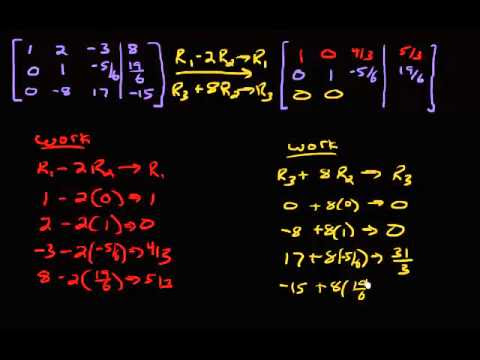 1 2 -3 | 8
0 1 -5/6 | 19/6
0 -8 17 | -15
R₁-2R₂→R₁
R₃+8R₂→R₃
1 0 4/3 | 5/3
0 1 -5/6 | 19/6
0 0
work
R₁-2R₂→R₁
1-2(0)→1
2-2(1)→0
-3-2(-5/6)→4/3
8-2(19/6)→5/3
work
R₃+8R₂→R₃
0+8(0)→0
-8+8(1)→0
17+8(-5/6)→31/3
-15+8(19/6